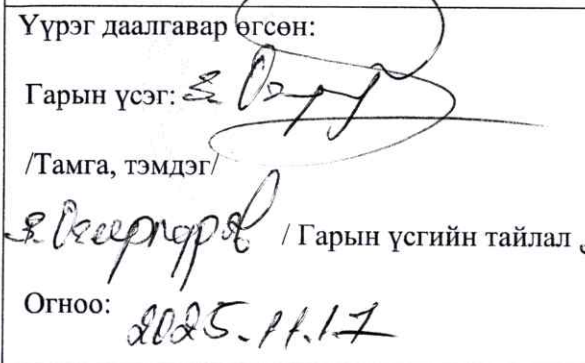 Үүрэг даалгавар өгсөн:
Гарын үсэг:
/Тамга, тэмдэг/
/ Гарын үсгийн тайлал
Огноо: 2025.11.17